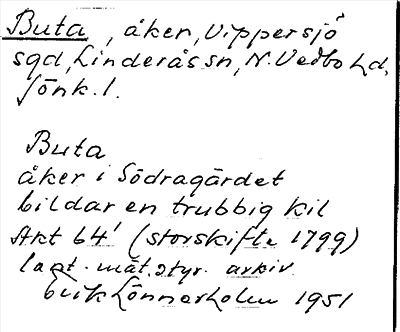 Buta, åker, Vippersjö
sgd, Linderås sn, N. Vedbo hd,
Jönk. l.
Buta
åker i Södragärdet
bildar en trubbig kil
Akt 64' (storskifte 1799)
lant. mät. styr. arkiv.
Erik Lönnerholm 1951